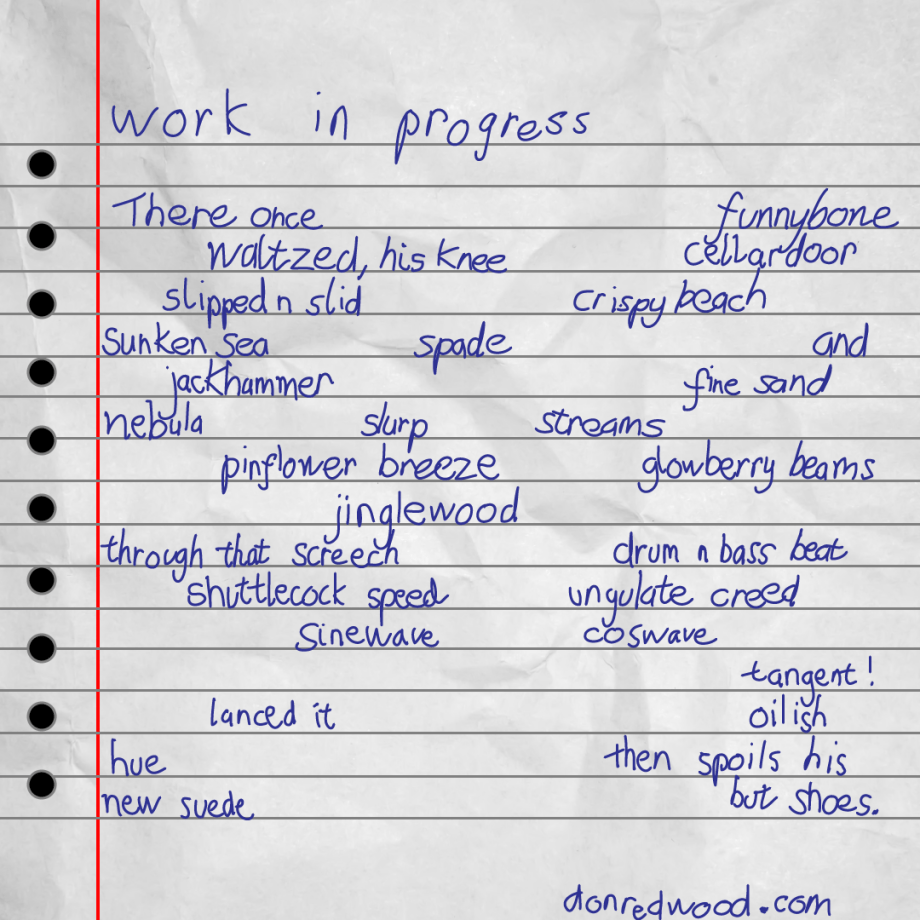 work in progress
There once funnybone
waltzed, his knee cellardoor
slipped n slid crispy beach
sunken sea spade and
jackhammer fine sand
nebula slurp streams
pinflower breeze glowberry beams
jinglewood
through that screech drum n bass beat
shuttlecock speed ungulate creed
sinewave coswave
tangent!
lanced it oilish
hue then spoils his
new suede but shoes.
donredwood.com